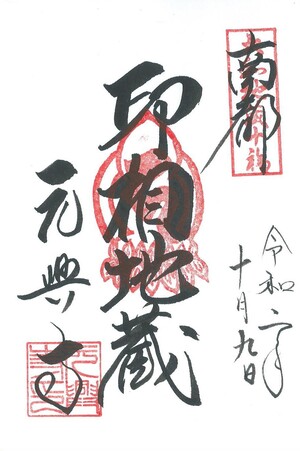 南都
令和二年
十月九日
印相地蔵
元興寺